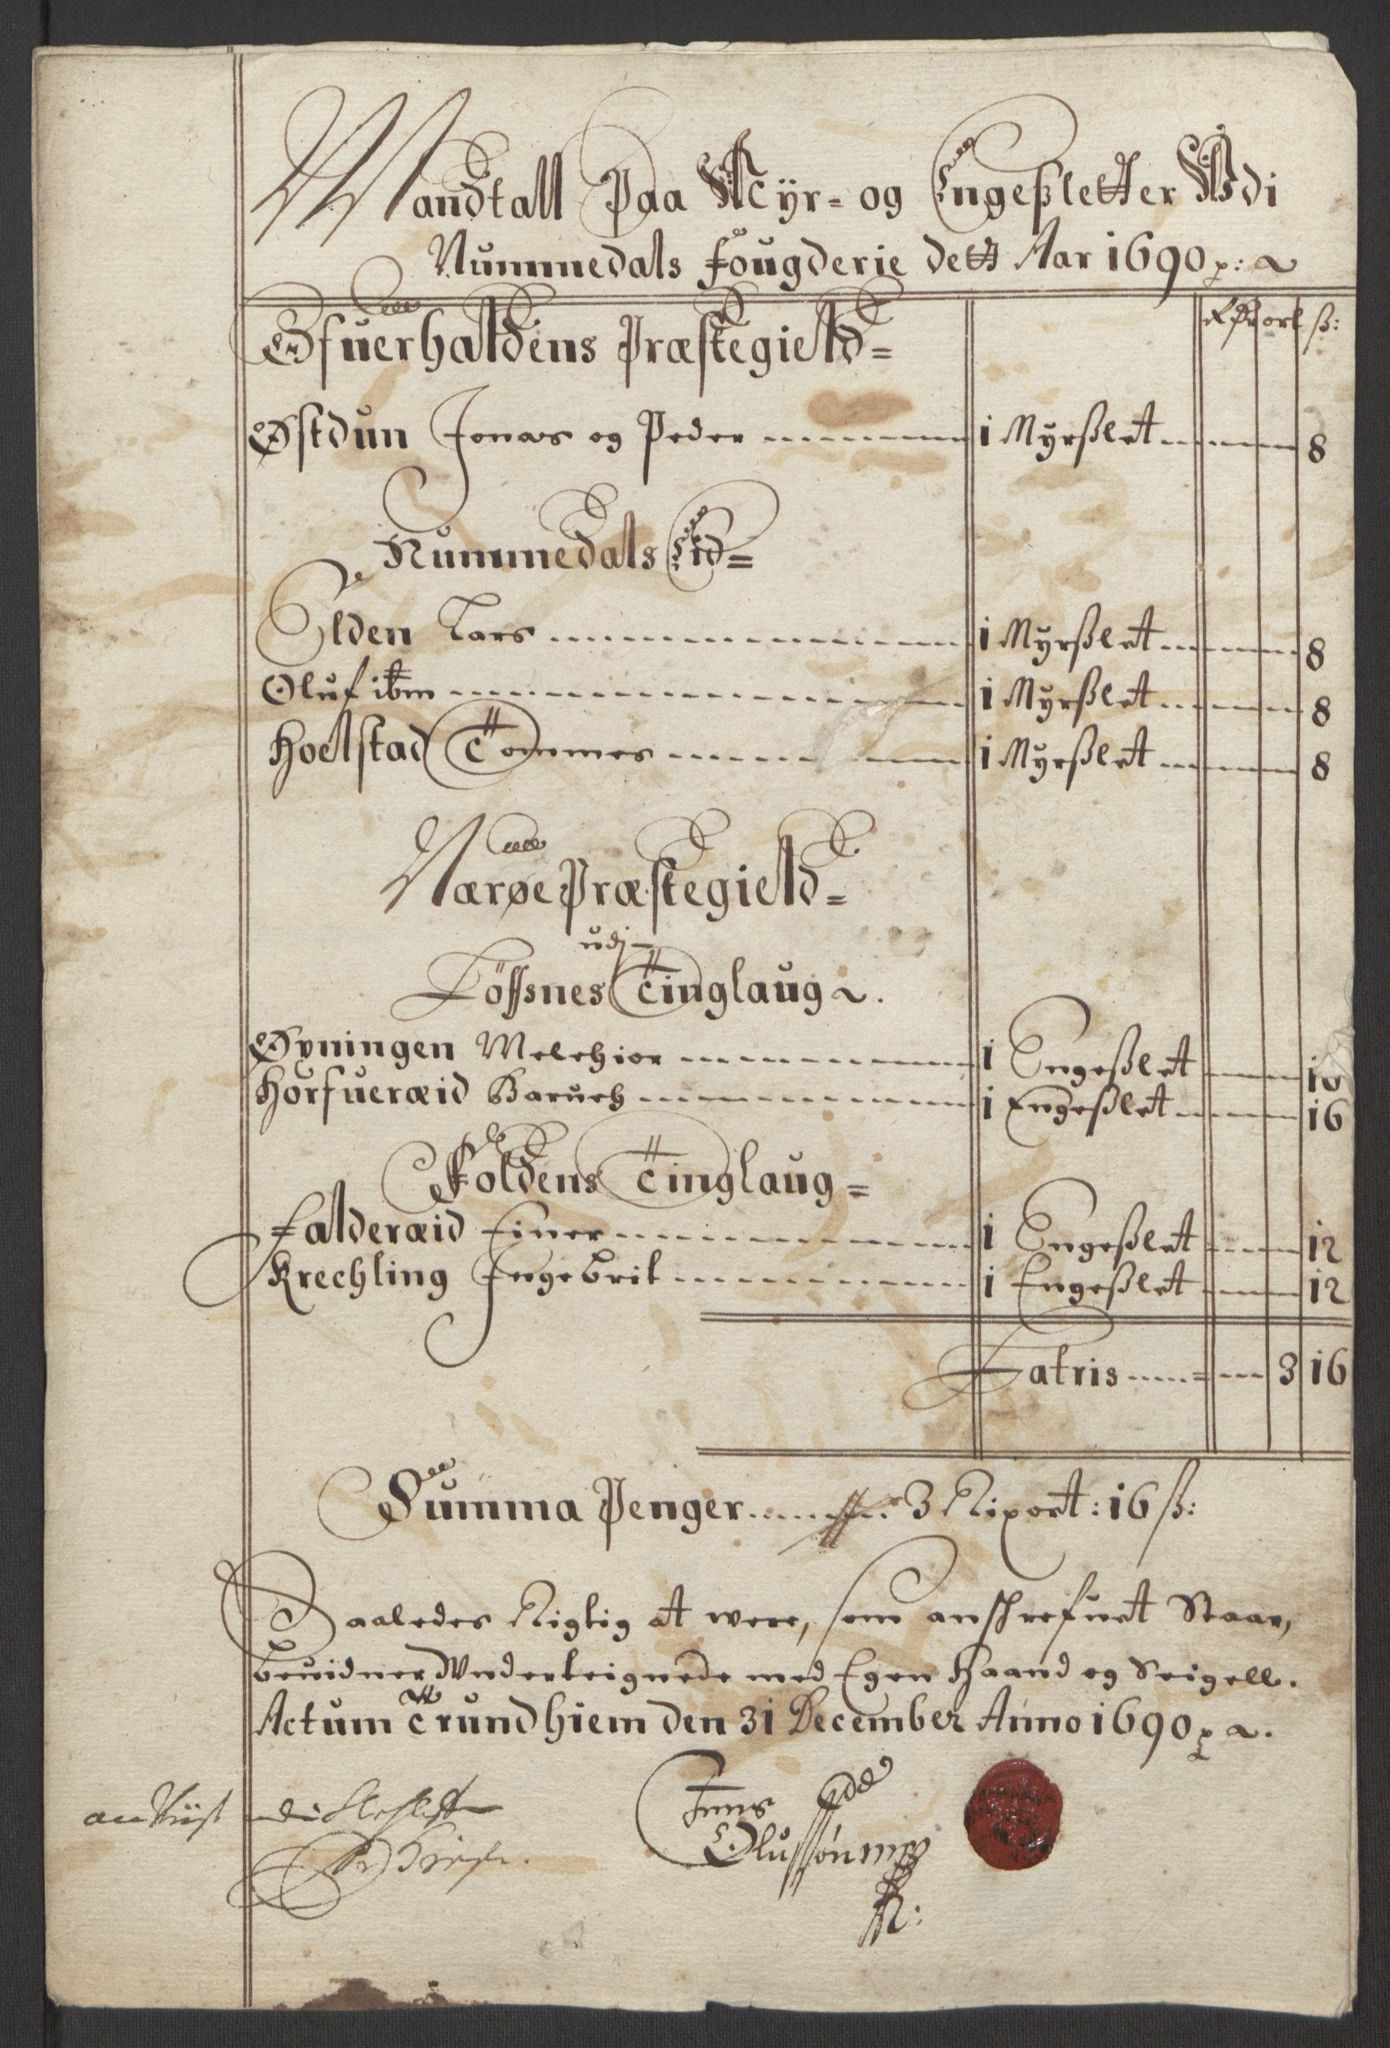 Mandtall Paa Myr- og Engeßletter Udi
Nummedals Fougderie dett Aar 1690 p:
Rdr ort ß:
Ofuerhaldens Præstegield=
Østdun Jonas og Peder ........ 1 Myrßlet ........ 8
Nummedals Eid=
Elden Lars ........ 1 Myrßlet ........ 8
Oluf ibm ........ 1 Myrßlet ........ 8
Hoelstad Tommes ........ 1 Myrßlet ........ 8
Nærøe Præstegield=
udj
Fössnes Tinglaug
Øyningen Melchior ........ 1 Engeßlet ........ 16
Horfueræid Baruch ........ 1 Engeßlet ........ 16
Foldens Tinglaug=
Falderæid Einer ........ 1 Engeßlet ........ 12
Krechling Ingebrit ........ 1 Engeßlet ........ 12
Latris ........ 3 16
Summa Penger ........ 3 Rixort: 16 ß:
Saaledes Rigtig at were, som anschrefuet Staar,
beuidner Underteignede med Egen Haand og Seigell.
Actum Trundhiem den 31 December Anno 1690 p
Jens
Olufssøn mpp